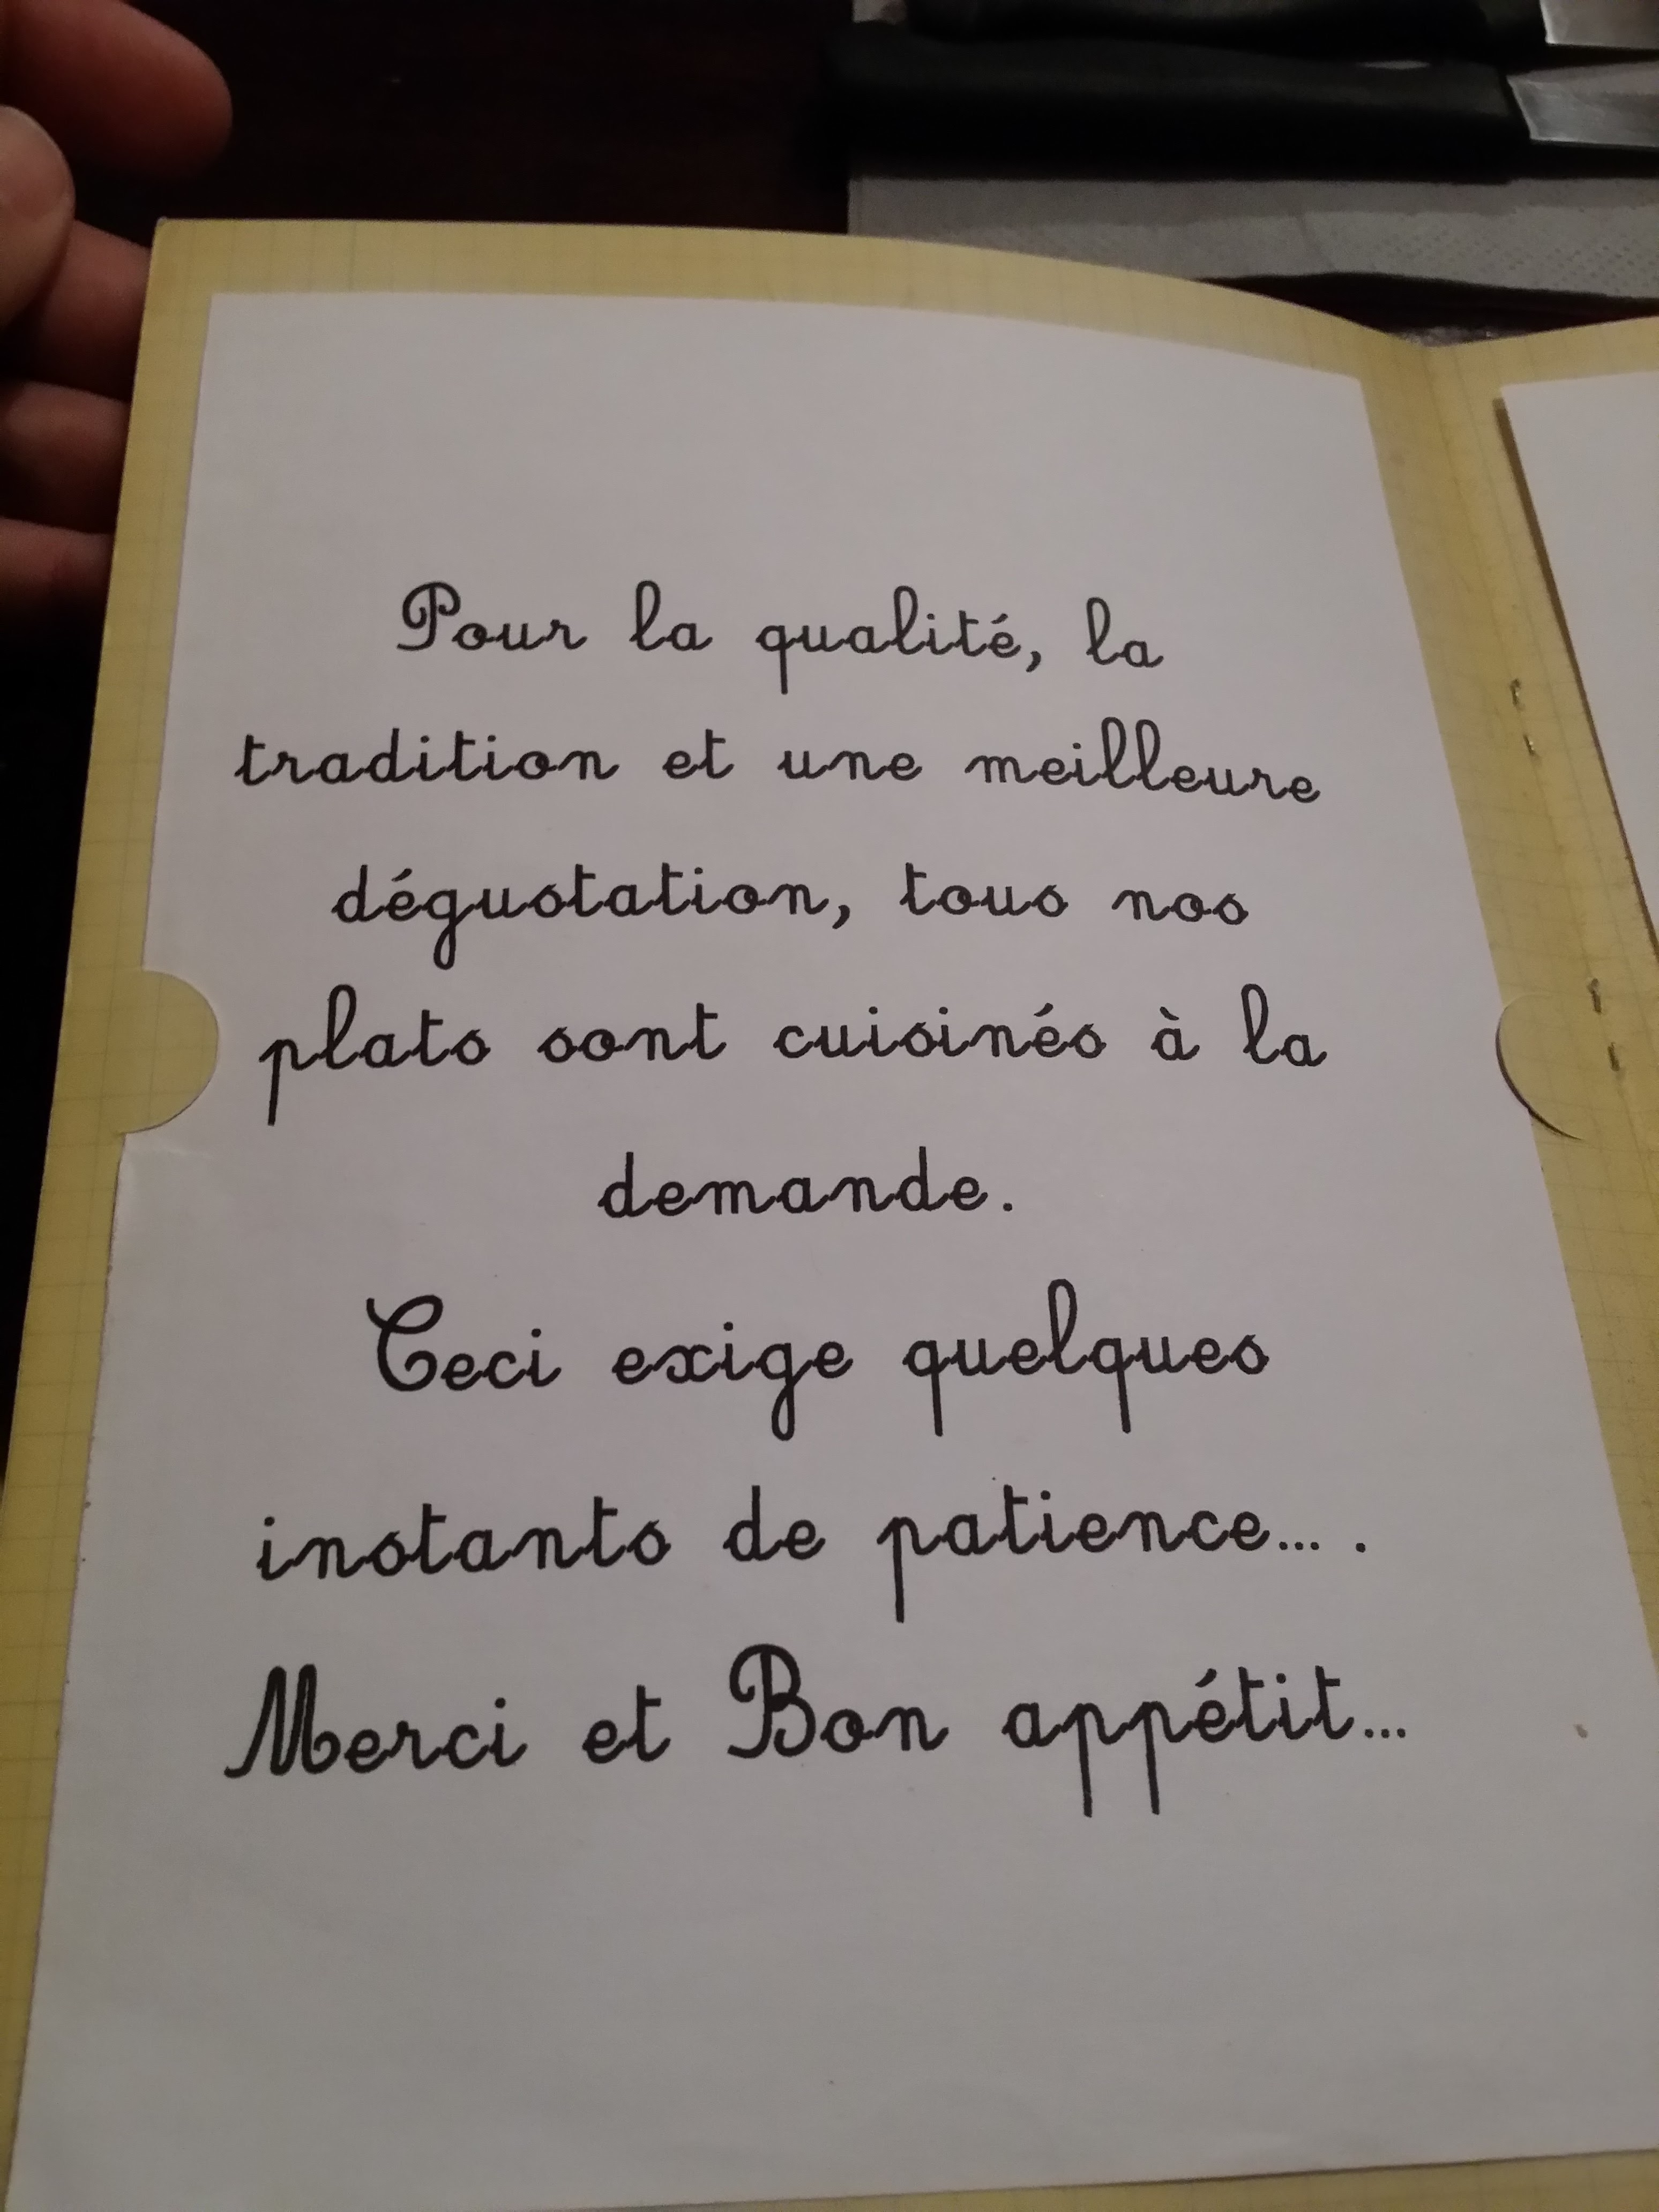 Pour la qualité, la
tradition et une meilleure
dégustation, tous nos
plats sont cuisinés à la
demande.
Ceci exige quelques
instants de patience... .
Merci et Bon appétit...